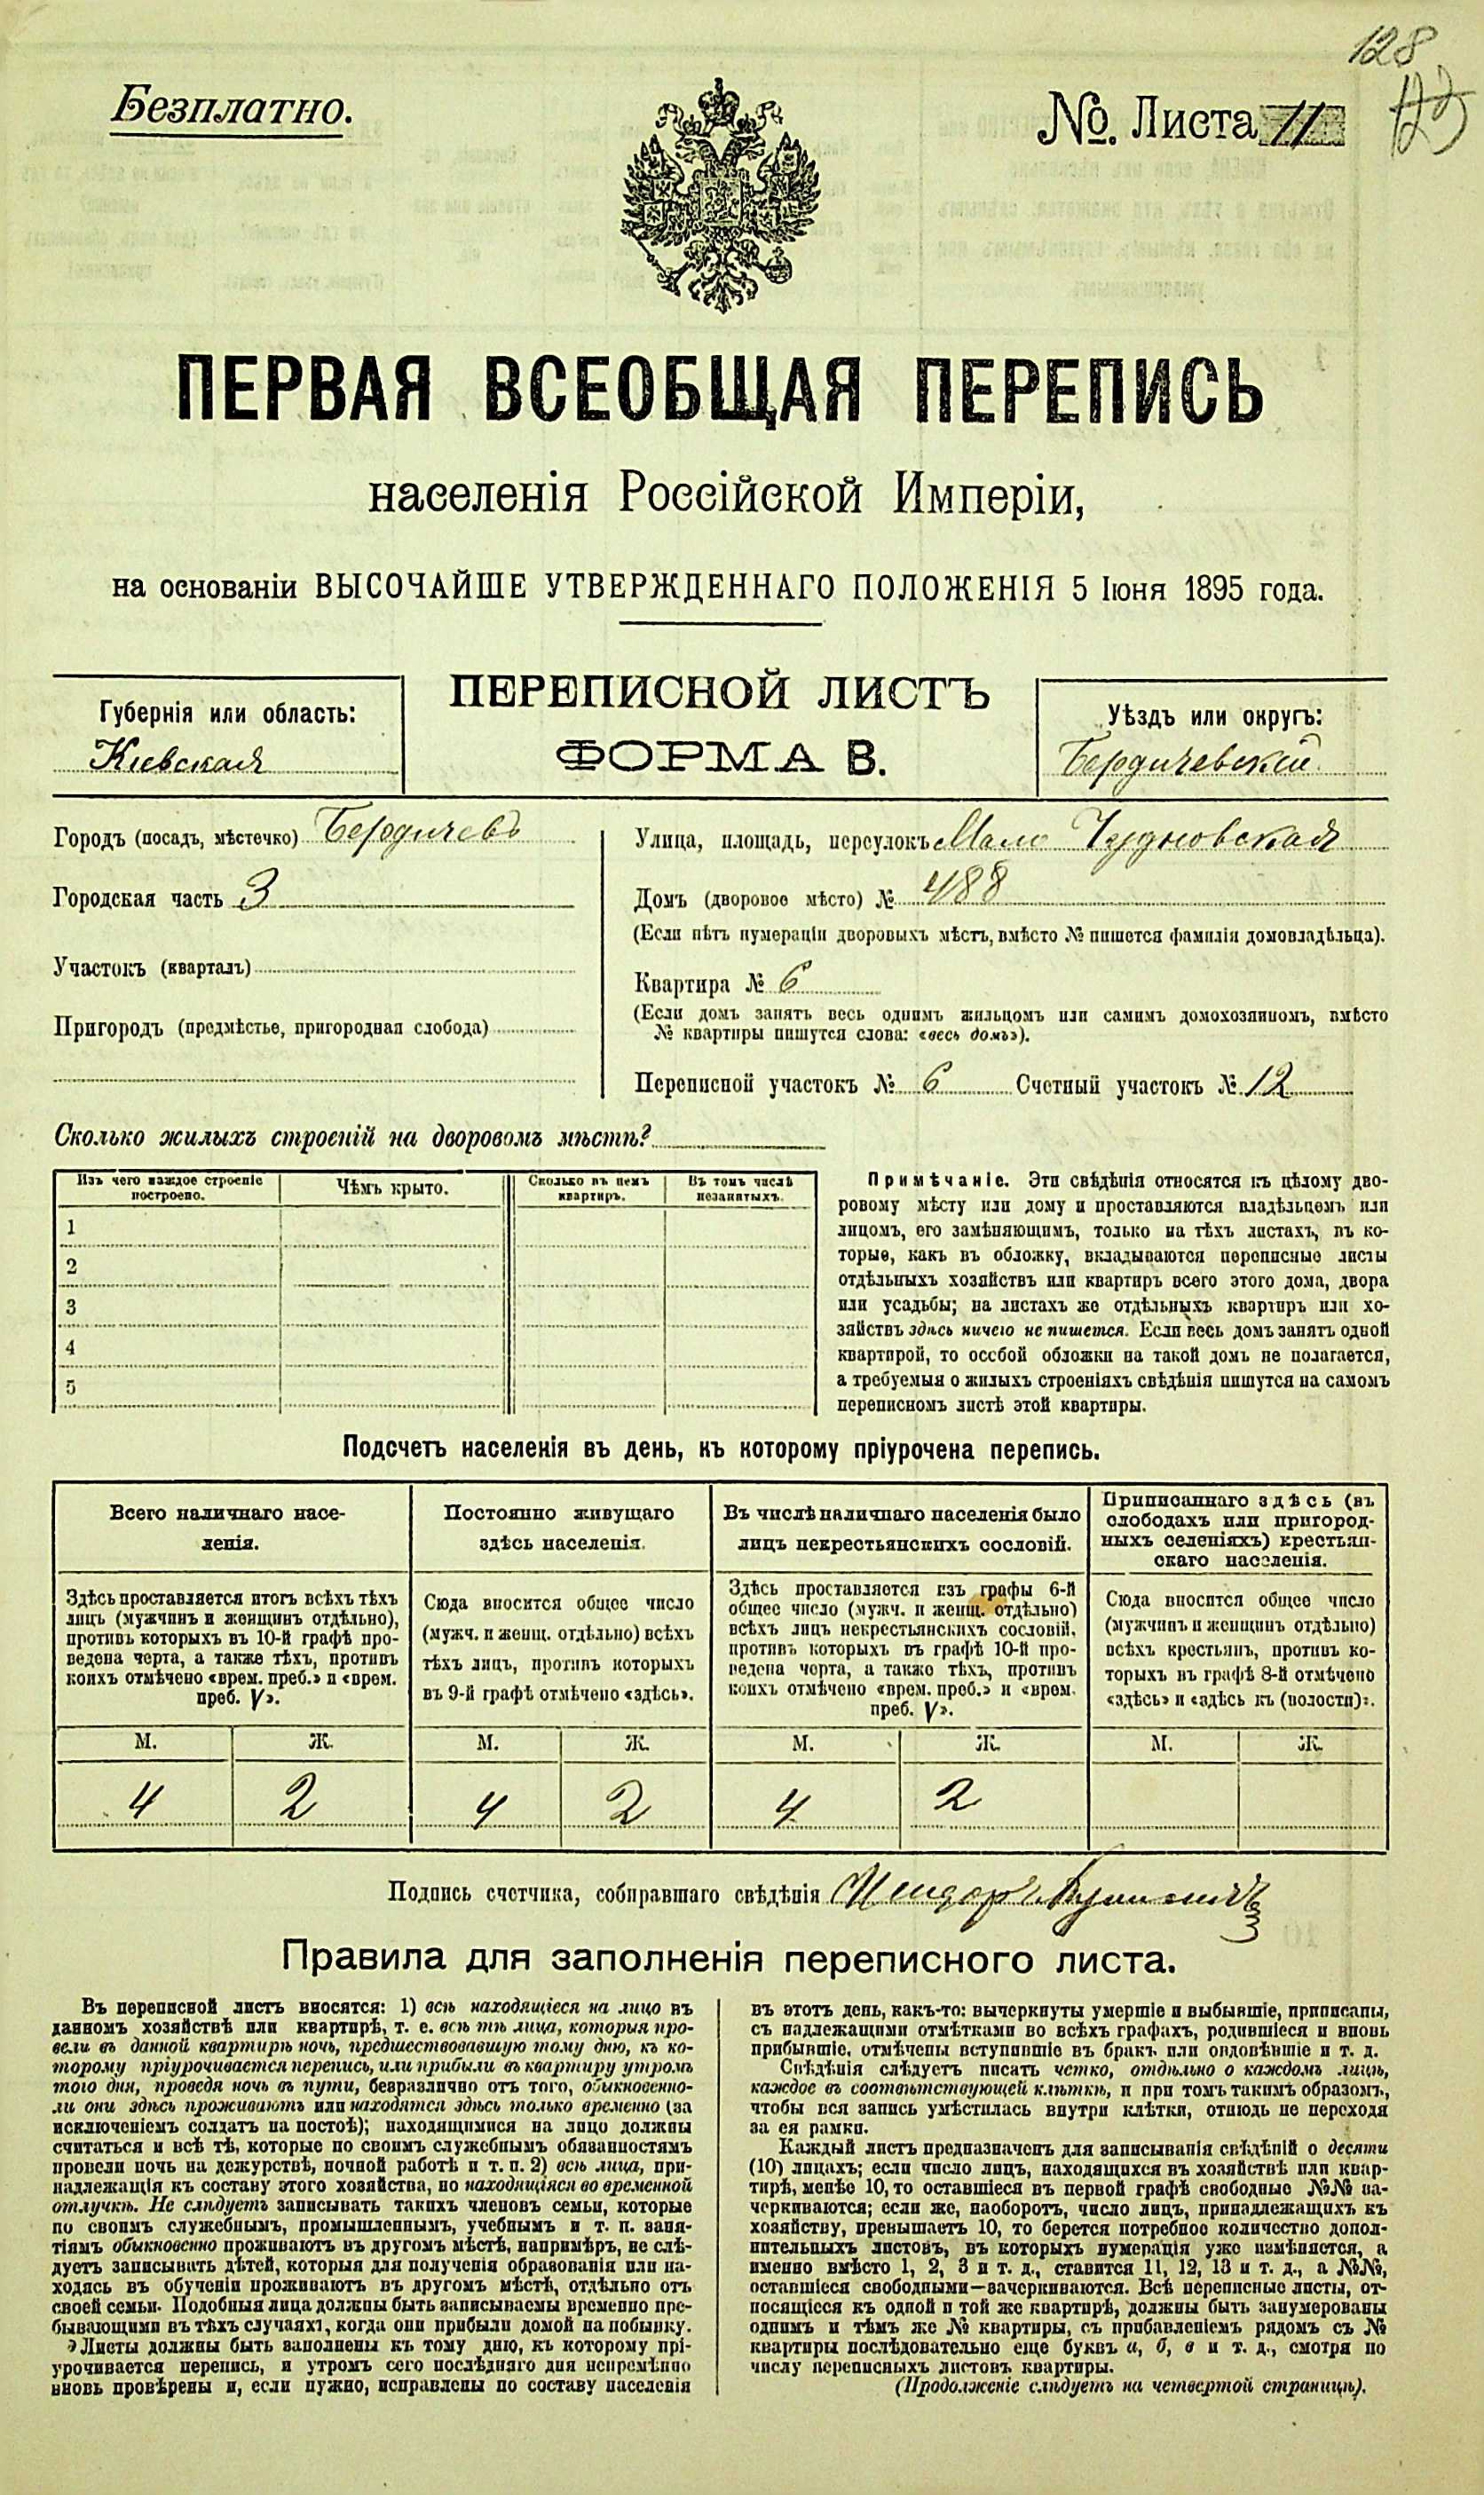 128
Безплатно.
№. Листа 11
ПЕРВАЯ ВСЕОБЩАЯ ПЕРЕПИСЬ
населенія Россійской Имперіи,
на основаніи ВЫСОЧАЙШЕ УТВЕРЖДЕННАГО ПОЛОЖЕНІЯ 5 Іюня 1895 года.
Губернія или область:
Кіевская
ПЕРЕПИСНОЙ ЛИСТЪ
ФОРМА В.
Уѣздъ или округъ:
Бердичевскій
Городъ (посадъ, мѣстечко) Бердичевъ
Городская часть 3
Участокъ (кварталъ)
Пригородъ (предмѣстье, пригородная слобода)
Улица, площадь, переулокъ Мало Чудновская
Домъ (дворовое мѣсто) № 488
(Если нѣтъ нумераціи дворовыхъ мѣстъ, вмѣсто № пишется фамилія домовладѣльца).
Квартира № 6
(Если домъ занятъ весь однимъ жильцомъ или самимъ домохозяиномъ, вмѣсто
№ квартиры пишутся слова: «весь домъ»).
Переписной участокъ № 6 Счетный участокъ № 12
Сколько жилыхъ строеній на дворовомъ мѣстѣ?
Изъ чего каждое строеніе
построено.
Чѣмъ крыто.
Сколько въ немъ
квартиръ.
Въ томъ числѣ
незанятыхъ.
1
2
3
4
5
Примѣчаніе. Эти свѣдѣнія относятся къ цѣлому дво-
ровому мѣсту или дому и проставляются владѣльцемъ или
лицомъ, его замѣняющимъ, только на тѣхъ листахъ, въ ко-
торые, какъ въ обложку, вкладываются переписные листы
отдѣльныхъ хозяйствъ или квартиръ всего этого дома, двора
или усадьбы; на листахъ же отдѣльныхъ квартиръ или хо-
зяйствъ здѣсь ничего не пишется. Если весь домъ занятъ одной
квартирой, то особой обложки на такой домъ не полагается,
а требуемыя о жилыхъ строеніяхъ свѣдѣнія пишутся на самомъ
переписномъ листѣ этой квартиры.
Подсчетъ населенія въ день, къ которому пріурочена перепись.
Всего наличнаго насе-
ленія.
Здѣсь проставляется итогъ всѣхъ тѣхъ
лицъ (мужчинъ и женщинъ отдѣльно),
противъ которыхъ въ 10-й графѣ про-
ведена черта, а также тѣхъ, противъ
коихъ отмѣчено «врем. преб.» и «врем.
преб. V».
Постоянно живущаго
здѣсь населенія.
Сюда вносится общее число
(мужч. и женщ. отдѣльно) всѣхъ
тѣхъ лицъ, противъ которыхъ
въ 9-й графѣ отмѣчено «здѣсь».
Въ числѣ наличнаго населенія было
лицъ некрестьянскихъ сословій.
Здѣсь проставляется изъ графы 6-й
общее число (мужч. и женщ. отдѣльно)
всѣхъ лицъ некрестьянскихъ сословій,
противъ которыхъ въ графѣ 10-й про-
ведена черта, а также тѣхъ, противъ
коихъ отмѣчено «врем. преб.» и «врем.
преб. V».
Приписаннаго здѣсь (въ
слободахъ или пригород-
ныхъ селеніяхъ) крестьян-
скаго населенія.
Сюда вносится общее число
(мужчинъ и женщинъ отдѣльно)
всѣхъ крестьянъ, противъ ко-
торыхъ въ графѣ 8-й отмѣчено
«здѣсь» и «здѣсь къ (волости)».
М. Ж. М. Ж. М. Ж. М. Ж.
4 2 4 2 4 2
Подпись счетчика, собиравшаго свѣдѣнія
Правила для заполненія переписного листа.
Въ переписной листъ вносятся: 1) всѣ находящіеся на лицо въ
данномъ хозяйствѣ или квартирѣ, т. е. всѣ тѣ лица, которыя про-
вели въ данной квартирѣ ночь, предшествовавшую тому дню, къ ко-
торому пріурочивается перепись, или прибыли въ квартиру утромъ
того дня, проведя ночь въ пути, безразлично отъ того, обыкновенно-
ли они здѣсь проживаютъ или находятся здѣсь только временно (за
исключеніемъ солдатъ на постоѣ); находящимися на лицо должны
считаться и всѣ тѣ, которые по своимъ служебнымъ обязанностямъ
провели ночь на дежурствѣ, ночной работѣ и т. п. 2) всѣ лица, при-
надлежащія къ составу этого хозяйства, но находящіяся во временной
отлучкѣ. Не слѣдуетъ записывать такихъ членовъ семьи, которые
по своимъ служебнымъ, промышленнымъ, учебнымъ и т. п. заня-
тіямъ обыкновенно проживаютъ въ другомъ мѣстѣ, напримѣръ, не слѣ-
дуетъ записывать дѣтей, которыя для полученія образованія или на-
ходясь въ обученіи проживаютъ въ другомъ мѣстѣ, отдѣльно отъ
своей семьи. Подобныя лица должны быть записываемы временно пре-
бывающими въ тѣхъ случаяхъ, когда они прибыли домой на побывку.
Листы должны быть заполнены къ тому дню, къ которому прі-
урочивается перепись, и утромъ сего послѣдняго дня непремѣнно
вновь провѣрены и, если нужно, исправлены по составу населенія
въ этотъ день, какъ-то: вычеркнуты умершіе и выбывшіе, приписаны,
съ надлежащими отмѣтками во всѣхъ графахъ, родившіеся и вновь
прибывшіе, отмѣчены вступившіе въ бракъ или овдовѣвшіе и т. д.
Свѣдѣнія слѣдуетъ писать четко, отдѣльно о каждомъ лицѣ,
каждое въ соотвѣтствующей клѣткѣ, и при томъ такимъ образомъ,
чтобы вся запись умѣстилась внутри клѣтки, отнюдь не переходя
за ея рамки.
Каждый листъ предназначенъ для записыванія свѣдѣній о десяти
(10) лицахъ; если число лицъ, находящихся въ хозяйствѣ или квар-
тирѣ, менѣе 10, то оставшіеся въ первой графѣ свободные №№ за-
черкиваются; если же, наоборотъ, число лицъ, принадлежащихъ къ
хозяйству, превышаетъ 10, то берется потребное количество допол-
нительныхъ листовъ, въ которыхъ нумерація уже измѣняется, а
именно вмѣсто 1, 2, 3 и т. д., ставится 11, 12, 13 и т. д., а №№,
оставшіеся свободными—зачеркиваются. Всѣ переписные листы, от-
носящіеся къ одной и той же квартирѣ, должны быть занумерованы
однимъ и тѣмъ же № квартиры, съ прибавленіемъ рядомъ съ №
квартиры послѣдовательно еще буквъ а, б, в и т. д., смотря по
числу переписныхъ листовъ квартиры.
(Продолженіе слѣдуетъ на четвертой страницѣ).